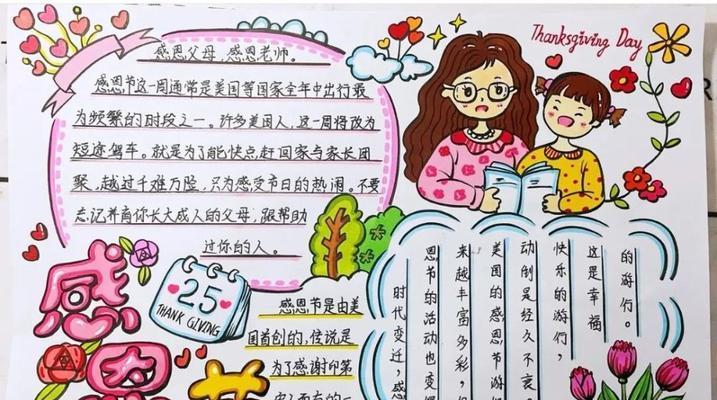 Thanksgiving Day
感恩父母,感恩老师。
感恩节这一周通常是美国等国家全年中出行最
为频繁的时段之一。许多美国人,这一周将改为
短途驾车。就是为了能快点赶回家与家长团
聚,越过千难万险,只为感受节日的热闹。不要
忘记养育你长大成人的父母,跟帮助
过你的人。
感恩
25
THANK GIVING
感恩节是由美
国首创的,传说是
为了感谢印第
时代变迁,感
恩节的活动也变
来越丰富多彩,
美国的感恩节游
动倒是经久不衰。
快乐的游行,
这是幸福
的游行。